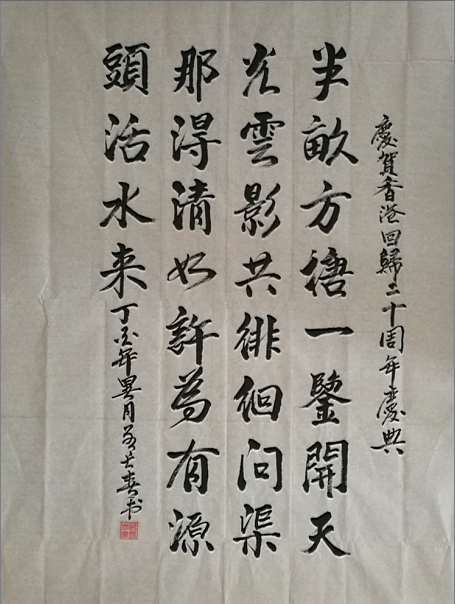 慶賀香港回歸二十周年慶典
半畝方塘一鑒開天
光雲影共徘徊問渠
那得清如許為有源
頭活水来
丁酉年月长春书